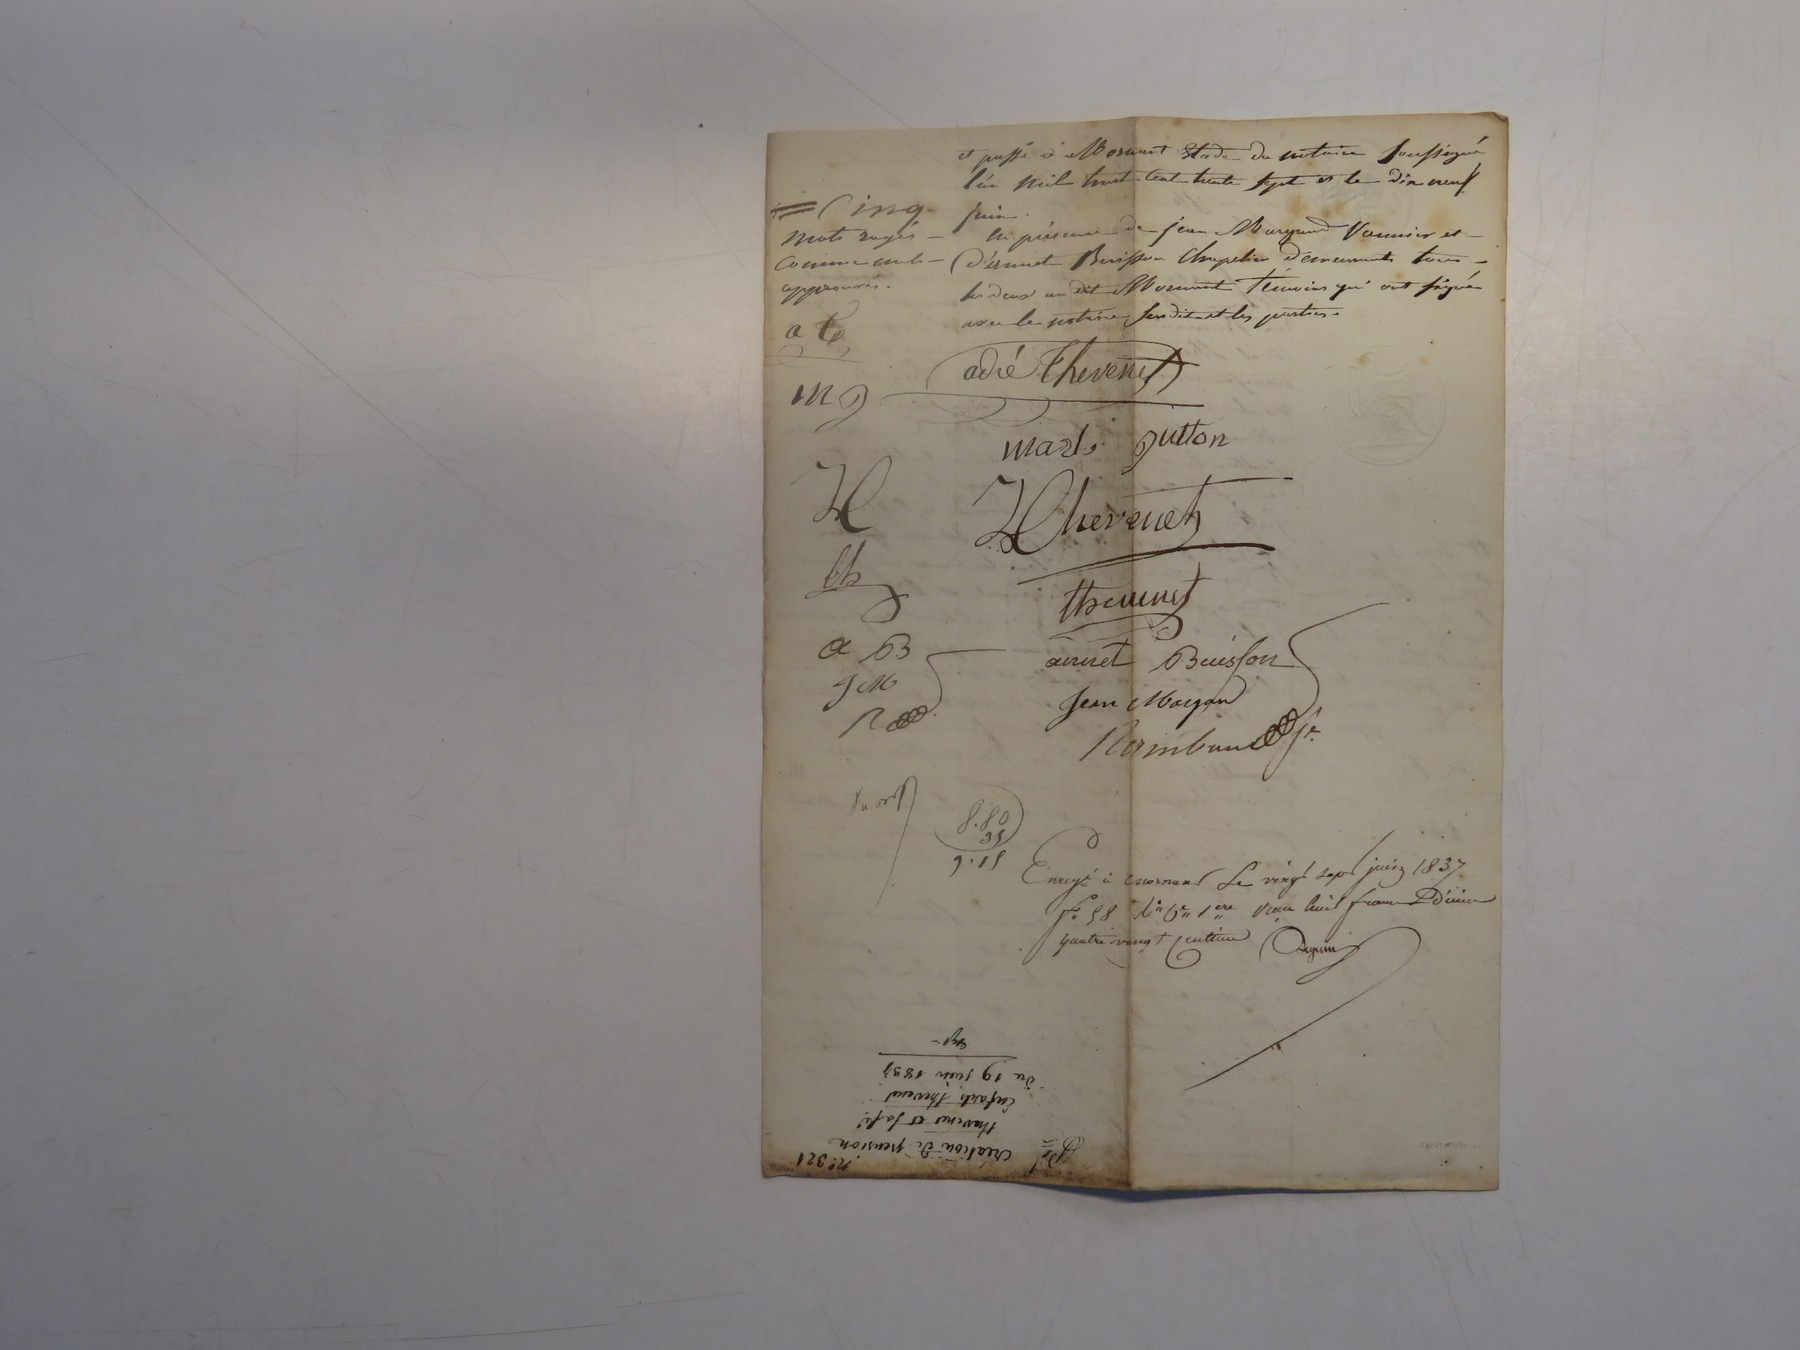 et passé à Mornant Etude du notaire soussigné
l'an mil huit cent trente sept et le dix neuf
juin.
En présence de jean Moryand Vannier et
d'annet Buisson Chapelier demeurants tous
les deux au dit Mornant témoins qui ont signé
avec le notaire susdit et les parties.
Cinq
mots rayés
comme nuls
approuvés.
a t
m g
th
a B
J M
R
adré thevenet
marie gutton
thevenet
thevenet
annet Buisson
Jean Moryan
Raimbaud
8.80
35
9.15
Enregé à mornant Le vingt sept juin 1837
fo 58 Ro Co 1ere Reçu huit francs Décime
quatre vingt centimes
no. 321
création de pension
thevenet et
Enfants thevenet
du 19 juin 1837